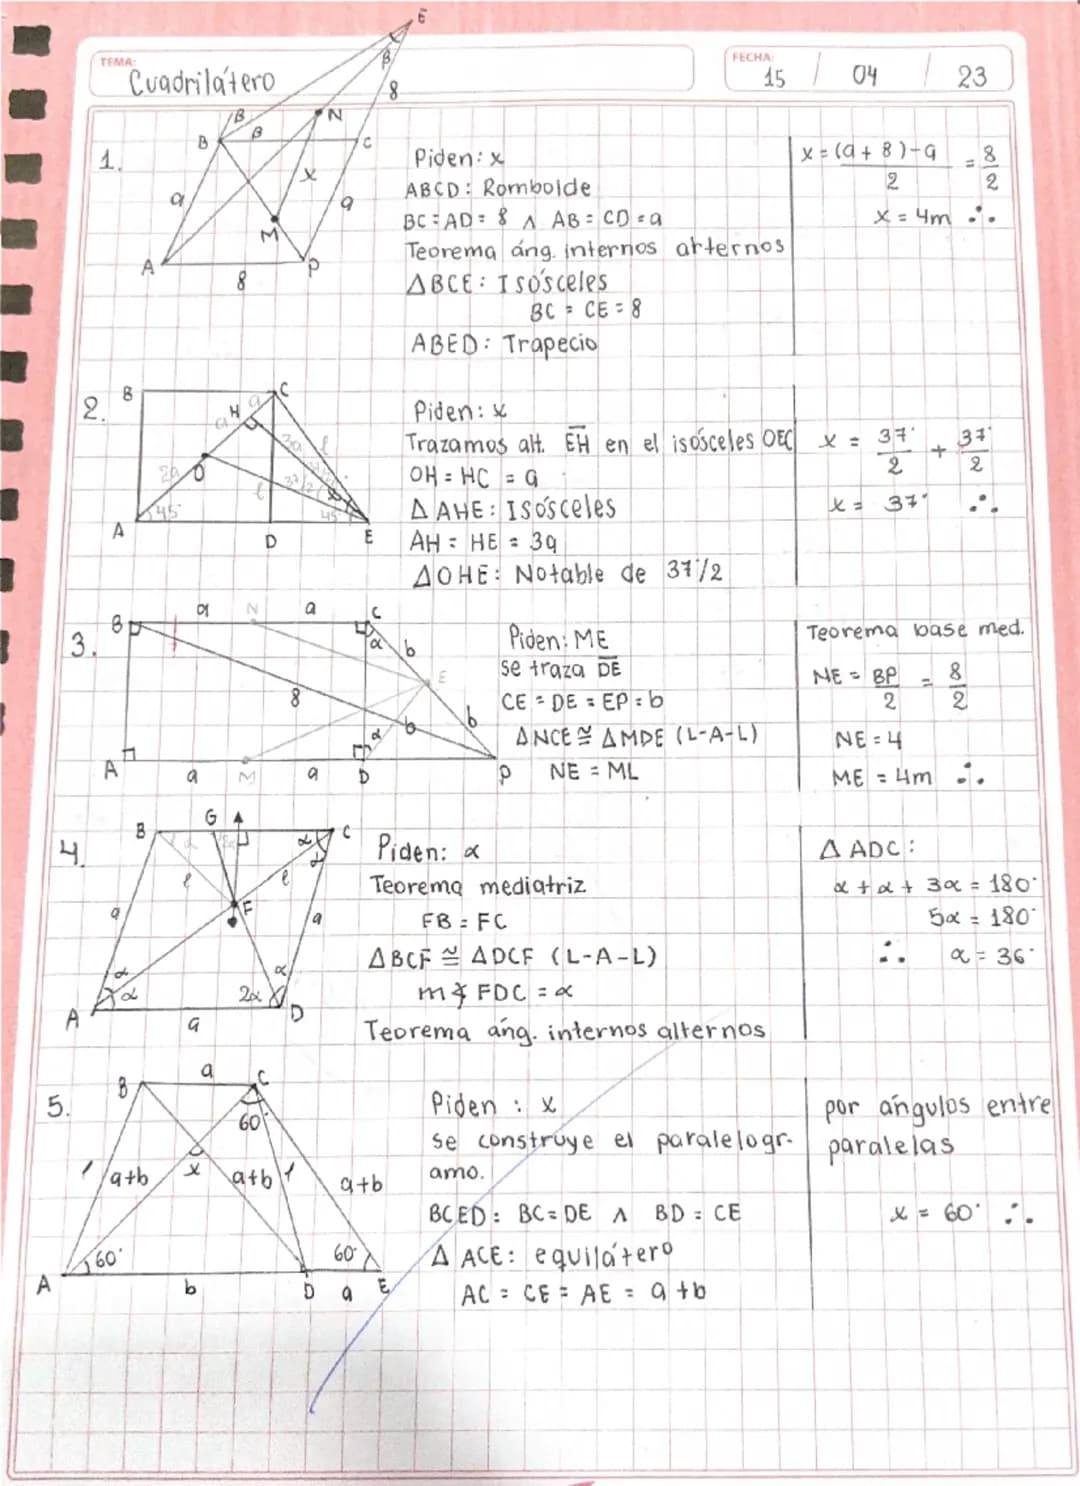 TEMA:
Cuadrilátero
FECHA:
15 / 04 / 23
1.
E
β
8
B
β
β
N
C
a
x
a
M
A
8
P
Piden: x
ABCD: Romboide
BC = AD = 8 ∧ AB = CD = a
Teorema áng. internos arternos
△BCE: Isósceles
BC = CE = 8
ABED: Trapecio
x = (a + 8) - a / 2 = 8 / 2
x = 4m ∴
2.
B
C
a
H
a
3a
l
2a
O
l
37/2
x
45°
45
A
D
E
Piden: x
Trazamos alt. EH en el isósceles OEC
OH = HC = a
△AHE: Isósceles
AH = HE = 3a
△OHE: Notable de 37/2
x = 37° / 2 + 37° / 2
x = 37° ∴
3.
B
a
N
a
C
α
b
E
8
b
b
α
A
a
M
a
D
P
Piden: ME
se traza DE
CE = DE = EP = b
△NCE ≅ △MDE (L-A-L)
NE = ML
Teorema base med.
NE = BP / 2 = 8 / 2
NE = 4
ME = 4m ∴
4.
B
G
C
α
α
l
l
a
F
a
α
α
α
2α
A
a
D
Piden: α
Teorema mediatriz
FB = FC
△BCF ≅ △DCF (L-A-L)
m∡FDC = α
Teorema áng. internos alternos
△ADC:
α + α + 3α = 180°
5α = 180°
∴ α = 36°
5.
B
a
C
60°
a+b
x
a+b
a+b
60°
60°
A
b
D
a
E
Piden : x
se construye el paralelogr-
amo.
BCED: BC = DE ∧ BD = CE
△ ACE: equilátero
AC = CE = AE = a+b
por angulos entre
paralelas
x = 60° ∴